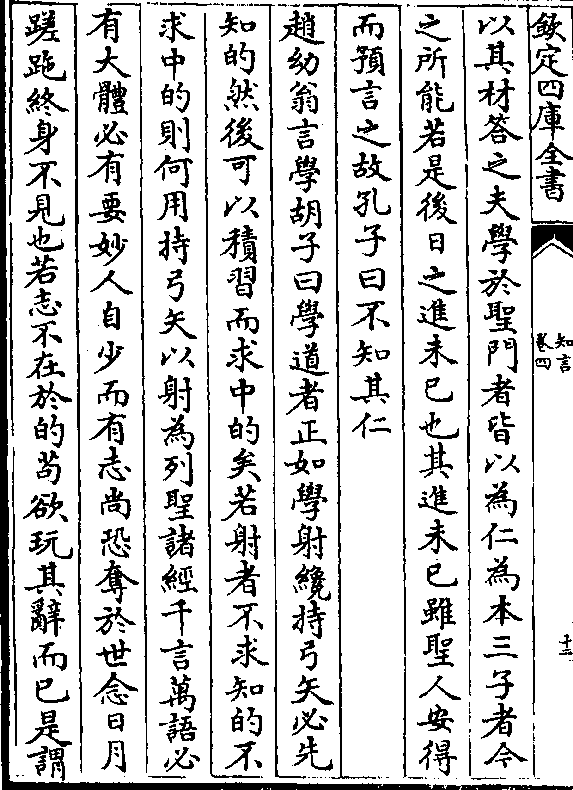 欽定四庫全書
知言
卷四
十三
以其材答之夫學於聖門者皆以為仁為本三子者今
之所能若是後日之進未已也其進未已雖聖人安得
而預言之故孔子曰不知其仁
趙幼翁言學胡子曰學道者正如學射纔持弓矢必先
知的然後可以積習而求中的矣若射者不求知的不
求中的則何用持弓矢以射為列聖諸經千言萬語必
有大體必有要妙人自少而有志尚恐奪於世念日月
蹉跎終身不見也若志不在於的苟欲玩其辭而已是謂